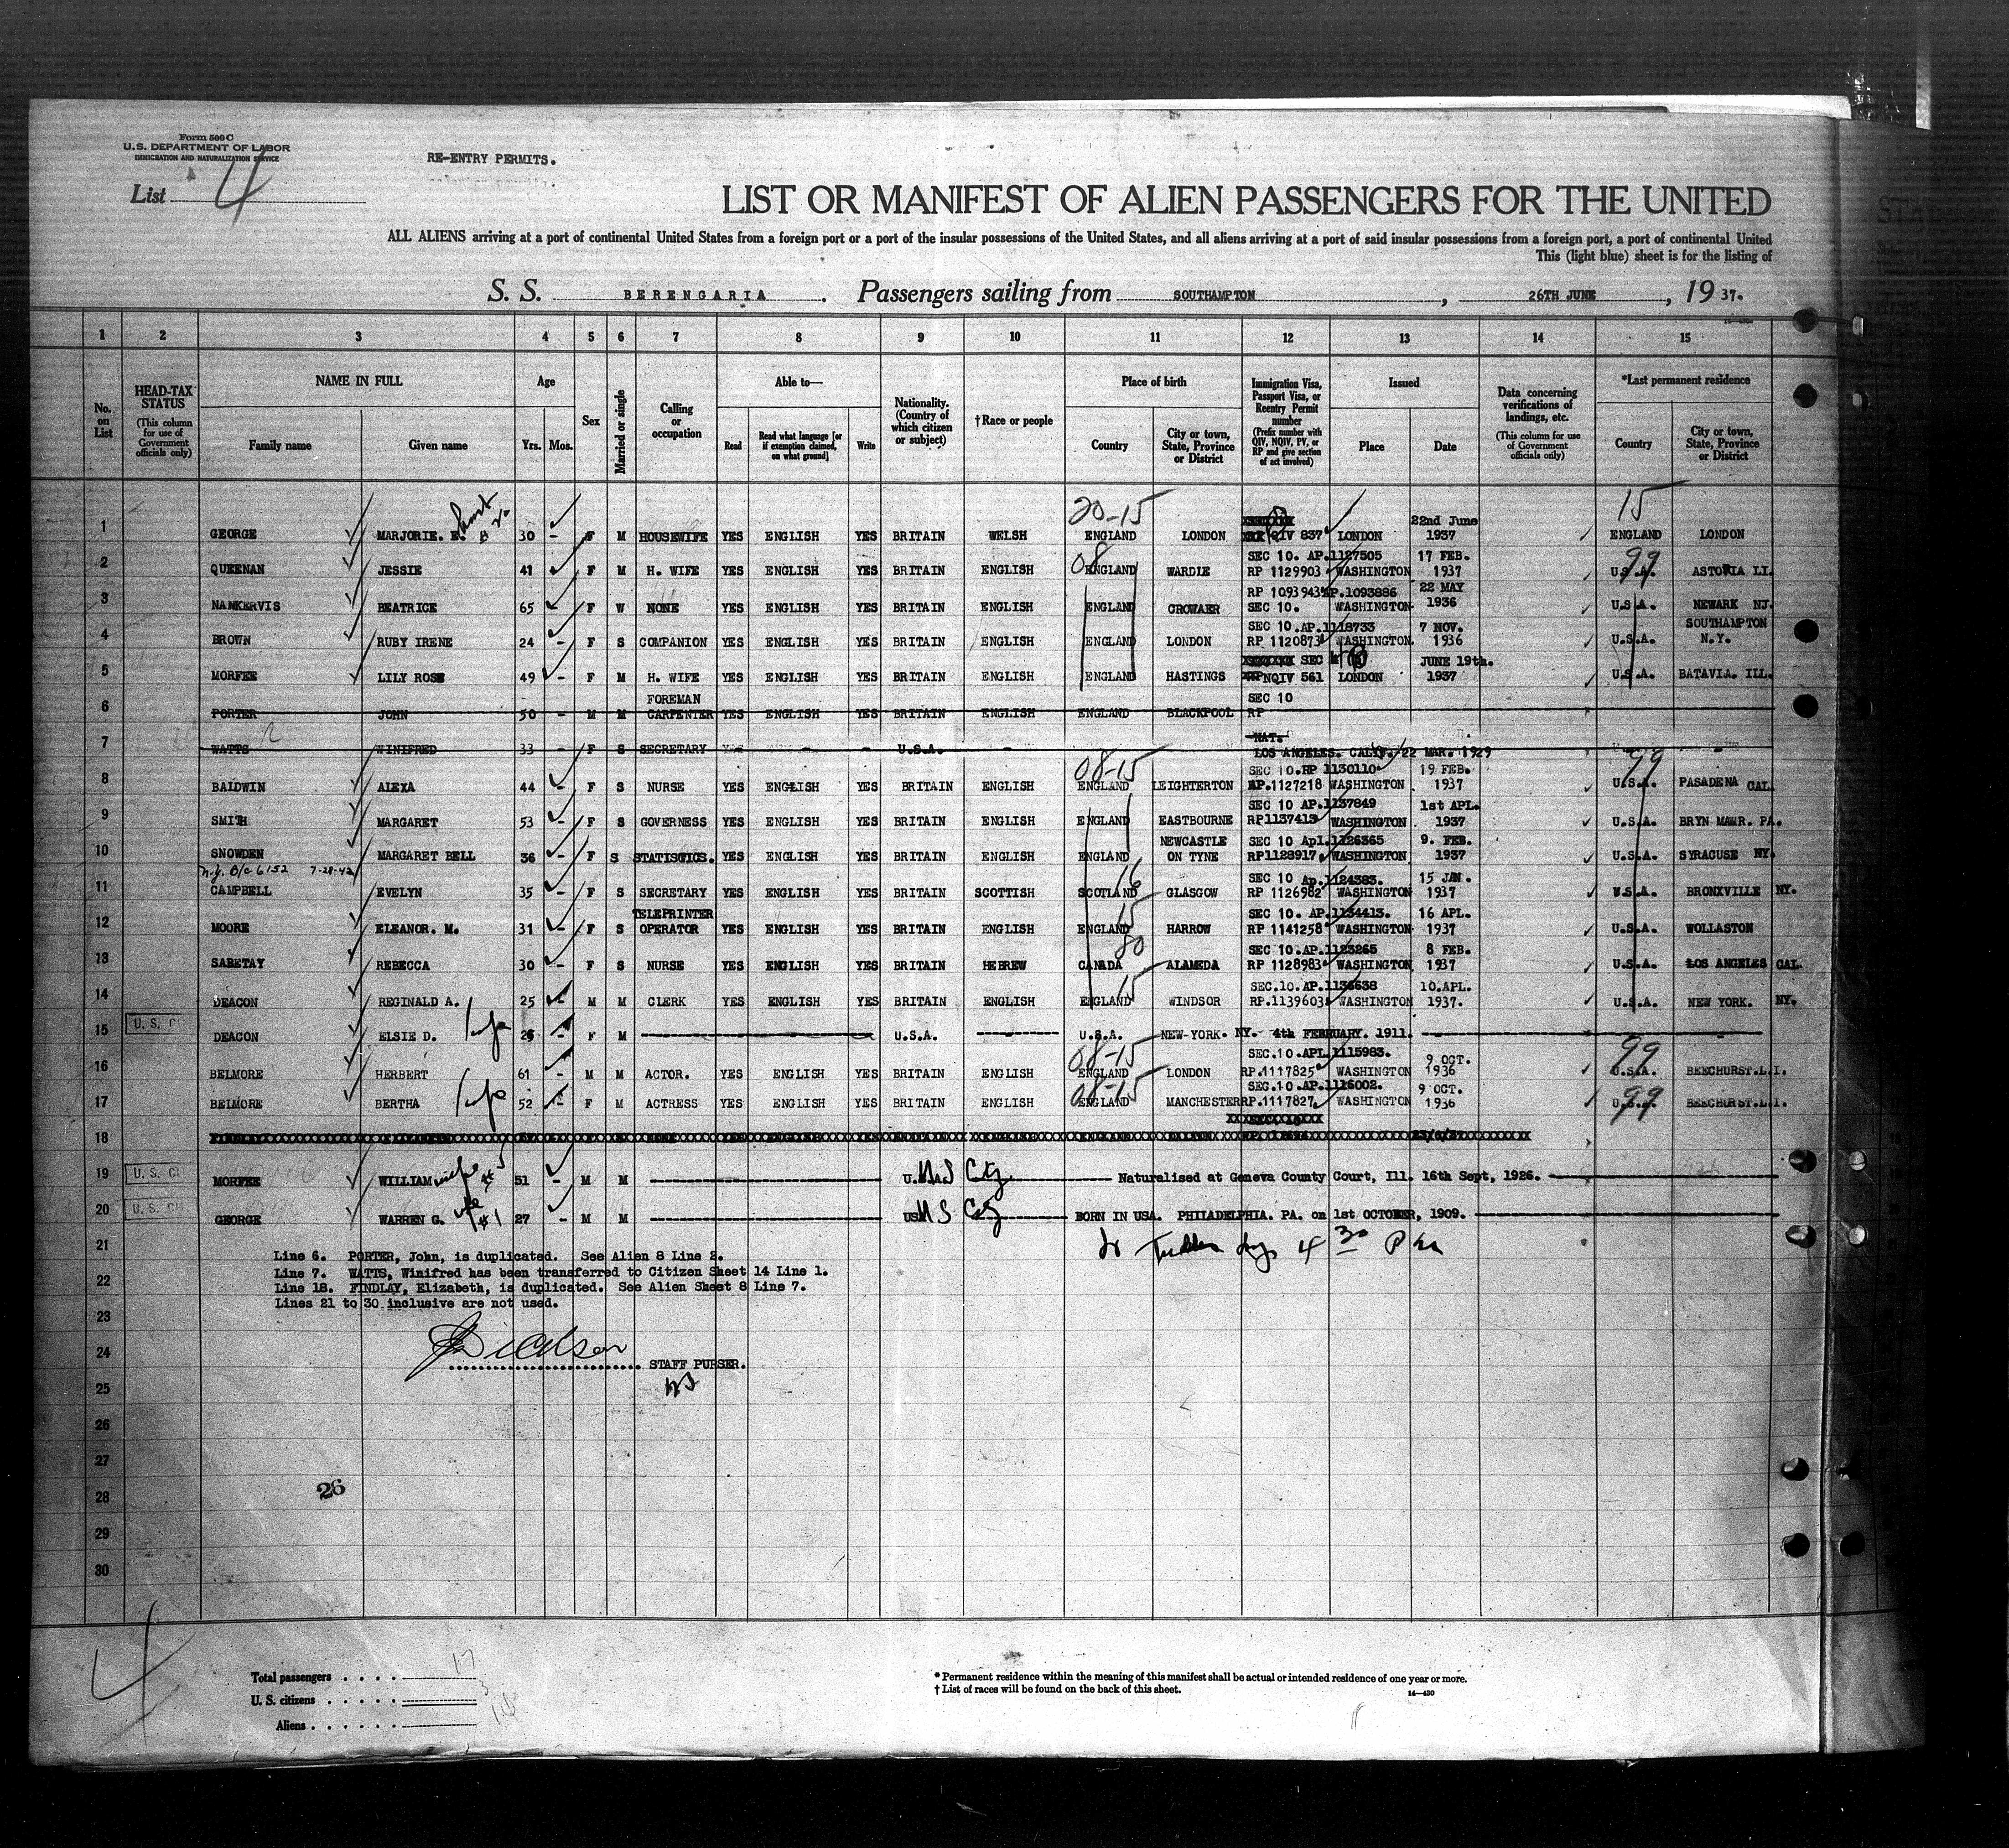 Form 500 C
U.S. DEPARTMENT OF LABOR
IMMIGRATION AND NATURALIZATION SERVICE
RE-ENTRY PERMITS.
List 4
LIST OR MANIFEST OF ALIEN PASSENGERS FOR THE UNITED
STA
ALL ALIENS arriving at a port of continental United States from a foreign port or a port of the insular possessions of the United States, and all aliens arriving at a port of said insular possessions from a foreign port, a port of continental United
This (light blue) sheet is for the listing of
S. S. BERENGARIA. Passengers sailing from SOUTHAMPTON, 26TH JUNE, 19 37.
1 2 3 4 5 6 7 8 9 10 11 12 13 14 15
No. on List
HEAD-TAX STATUS (This column for use of Government officials only)
NAME IN FULL
Family name Given name
Age
Yrs. Mos.
Sex
Married or single
Calling or occupation
Able to—
Read Read what language [or if exemption claimed, on what ground] Write
Nationality. (Country of which citizen or subject)
† Race or people
Place of birth
Country City or town, State, Province or District
Immigration Visa, Passport Visa, or Reentry Permit number (Prefix number with QIV, NQIV, PV, or RP and give section of act involved)
Issued
Place Date
Data concerning verifications of landings, etc. (This column for use of Government officials only)
*Last permanent residence
Country City or town, State, Province or District
20-15 15
1 GEORGE MARJORIE. E. 30 - F M HOUSEWIFE YES ENGLISH YES BRITAIN WELSH ENGLAND LONDON QIV 837 LONDON 22nd June 1937 ENGLAND LONDON
2 QUEENAN JESSIE 41 F M H. WIFE YES ENGLISH YES BRITAIN ENGLISH 08 ENGLAND WARDIE SEC 10. AP.1127505 RP 1129903 WASHINGTON 17 FEB. 1937 99 U.S.A. ASTORIA LI.
3 NANKERVIS BEATRICE 65 - F W NONE YES ENGLISH YES BRITAIN ENGLISH ENGLAND CROWAER RP 1093943 AP.1093886 SEC 10. WASHINGTON 22 MAY 1936 U.S.A. NEWARK NJ.
4 BROWN RUBY IRENE 24 - F S COMPANION YES ENGLISH YES BRITAIN ENGLISH ENGLAND LONDON SEC 10.AP.1118733 RP 1120873 WASHINGTON. 7 NOV. 1936 U.S.A. SOUTHAMPTON N.Y.
5 MORFEE LILY ROSE 49 - F M H. WIFE YES ENGLISH YES BRITAIN ENGLISH ENGLAND HASTINGS SEC NQIV 561 LONDON JUNE 19th. 1937 U.S.A. BATAVIA. ILL.
6 PORTER JOHN 50 - M M FOREMAN CARPENTER YES ENGLISH YES BRITAIN ENGLISH ENGLAND BLACKPOOL SEC 10 RP
7 WATTS WINIFRED 33 - F S SECRETARY - - - U.S.A. - NAT. LOS ANGELES. CALIF. 22 MAR. 1929
8 BALDWIN ALEXA 44 - F S NURSE YES ENGLISH YES BRITAIN ENGLISH 08-15 ENGLAND LEIGHTERTON SEC 10.RP 1130110 AP.1127218 WASHINGTON 19 FEB. 1937 99 U.S.A. PASADENA CAL.
9 SMITH MARGARET 53 - F S GOVERNESS YES ENGLISH YES BRITAIN ENGLISH ENGLAND EASTBOURNE SEC 10 AP.1137849 RP1137413 WASHINGTON 1st APL. 1937 U.S.A. BRYN MAWR. PA.
10 SNOWDEN MARGARET BELL 36 - F S STATISTICS. YES ENGLISH YES BRITAIN ENGLISH ENGLAND NEWCASTLE ON TYNE SEC 10 Apl.1126365 RP1128917 WASHINGTON 9. FEB. 1937 U.S.A. SYRACUSE NY.
N.Y. B/c 6152 7-28-42
11 CAMPBELL EVELYN 35 - F S SECRETARY YES ENGLISH YES BRITAIN SCOTTISH SCOTLAND 16 GLASGOW SEC 10 Ap.1124383. RP 1126982 WASHINGTON 15 JAN. 1937 U.S.A. BRONXVILLE NY.
12 MOORE ELEANOR. M. 31 - F S TELEPRINTER OPERATOR YES ENGLISH YES BRITAIN ENGLISH ENGLAND 15 HARROW SEC 10. AP.1134413. RP 1141258 WASHINGTON 16 APL. 1937 U.S.A. WOLLASTON
13 SABETAY REBECCA 30 - F S NURSE YES ENGLISH YES BRITAIN HEBREW CANADA 80 ALAMEDA SEC 10.AP.1123265 RP 1128983 WASHINGTON 8 FEB. 1937 U.S.A. LOS ANGELES CAL.
14 DEACON REGINALD A. 25 - M M CLERK YES ENGLISH YES BRITAIN ENGLISH ENGLAND 15 WINDSOR SEC.10.AP.1136638 RP.1139603 WASHINGTON 10.APL. 1937. U.S.A. NEW YORK. NY.
15 DEACON ELSIE D. 26 - F M U.S.A. U.S.A. NEW-YORK. NY. 4th FEBRUARY. 1911.
16 BELMORE HERBERT 61 - M M ACTOR. YES ENGLISH YES BRITAIN ENGLISH 08-15 ENGLAND LONDON SEC.10.APL.1115983. RP.1117825 WASHINGTON 9 OCT. 1936 99 U.S.A. BEECHURST.L.I.
17 BELMORE BERTHA 52 - F M ACTRESS YES ENGLISH YES BRITAIN ENGLISH 08-15 ENGLAND MANCHESTER SEC.10.AP.1116002. RP.1117827 WASHINGTON 9 OCT. 1936 99 U.S.A. BEECHURST.L.I.
18
19 MORFEE WILLIAM wife #5 51 - M M US Ctz Naturalised at Geneva County Court, Ill. 16th Sept, 1926.
20 GEORGE WARREN G. wife #1 27 - M M US Ctz BORN IN USA. PHILADELPHIA. PA. on 1st OCTOBER, 1909.
21
Line 6. PORTER, John, is duplicated. See Alien 8 Line 2.
22
Line 7. WATTS, Winifred has been transferred to Citizen Sheet 14 Line 1.
Line 18. FINDLAY, Elizabeth, is duplicated. See Alien Sheet 8 Line 7.
Lines 21 to 30 inclusive are not used.
23
24
STAFF PURSER.
25
26
27
28 26
29
30
4
Total passengers . . . . 17
U. S. citizens . . . . . 3
Aliens . . . . . . 14
* Permanent residence within the meaning of this manifest shall be actual or intended residence of one year or more.
† List of races will be found on the back of this sheet.
14—430